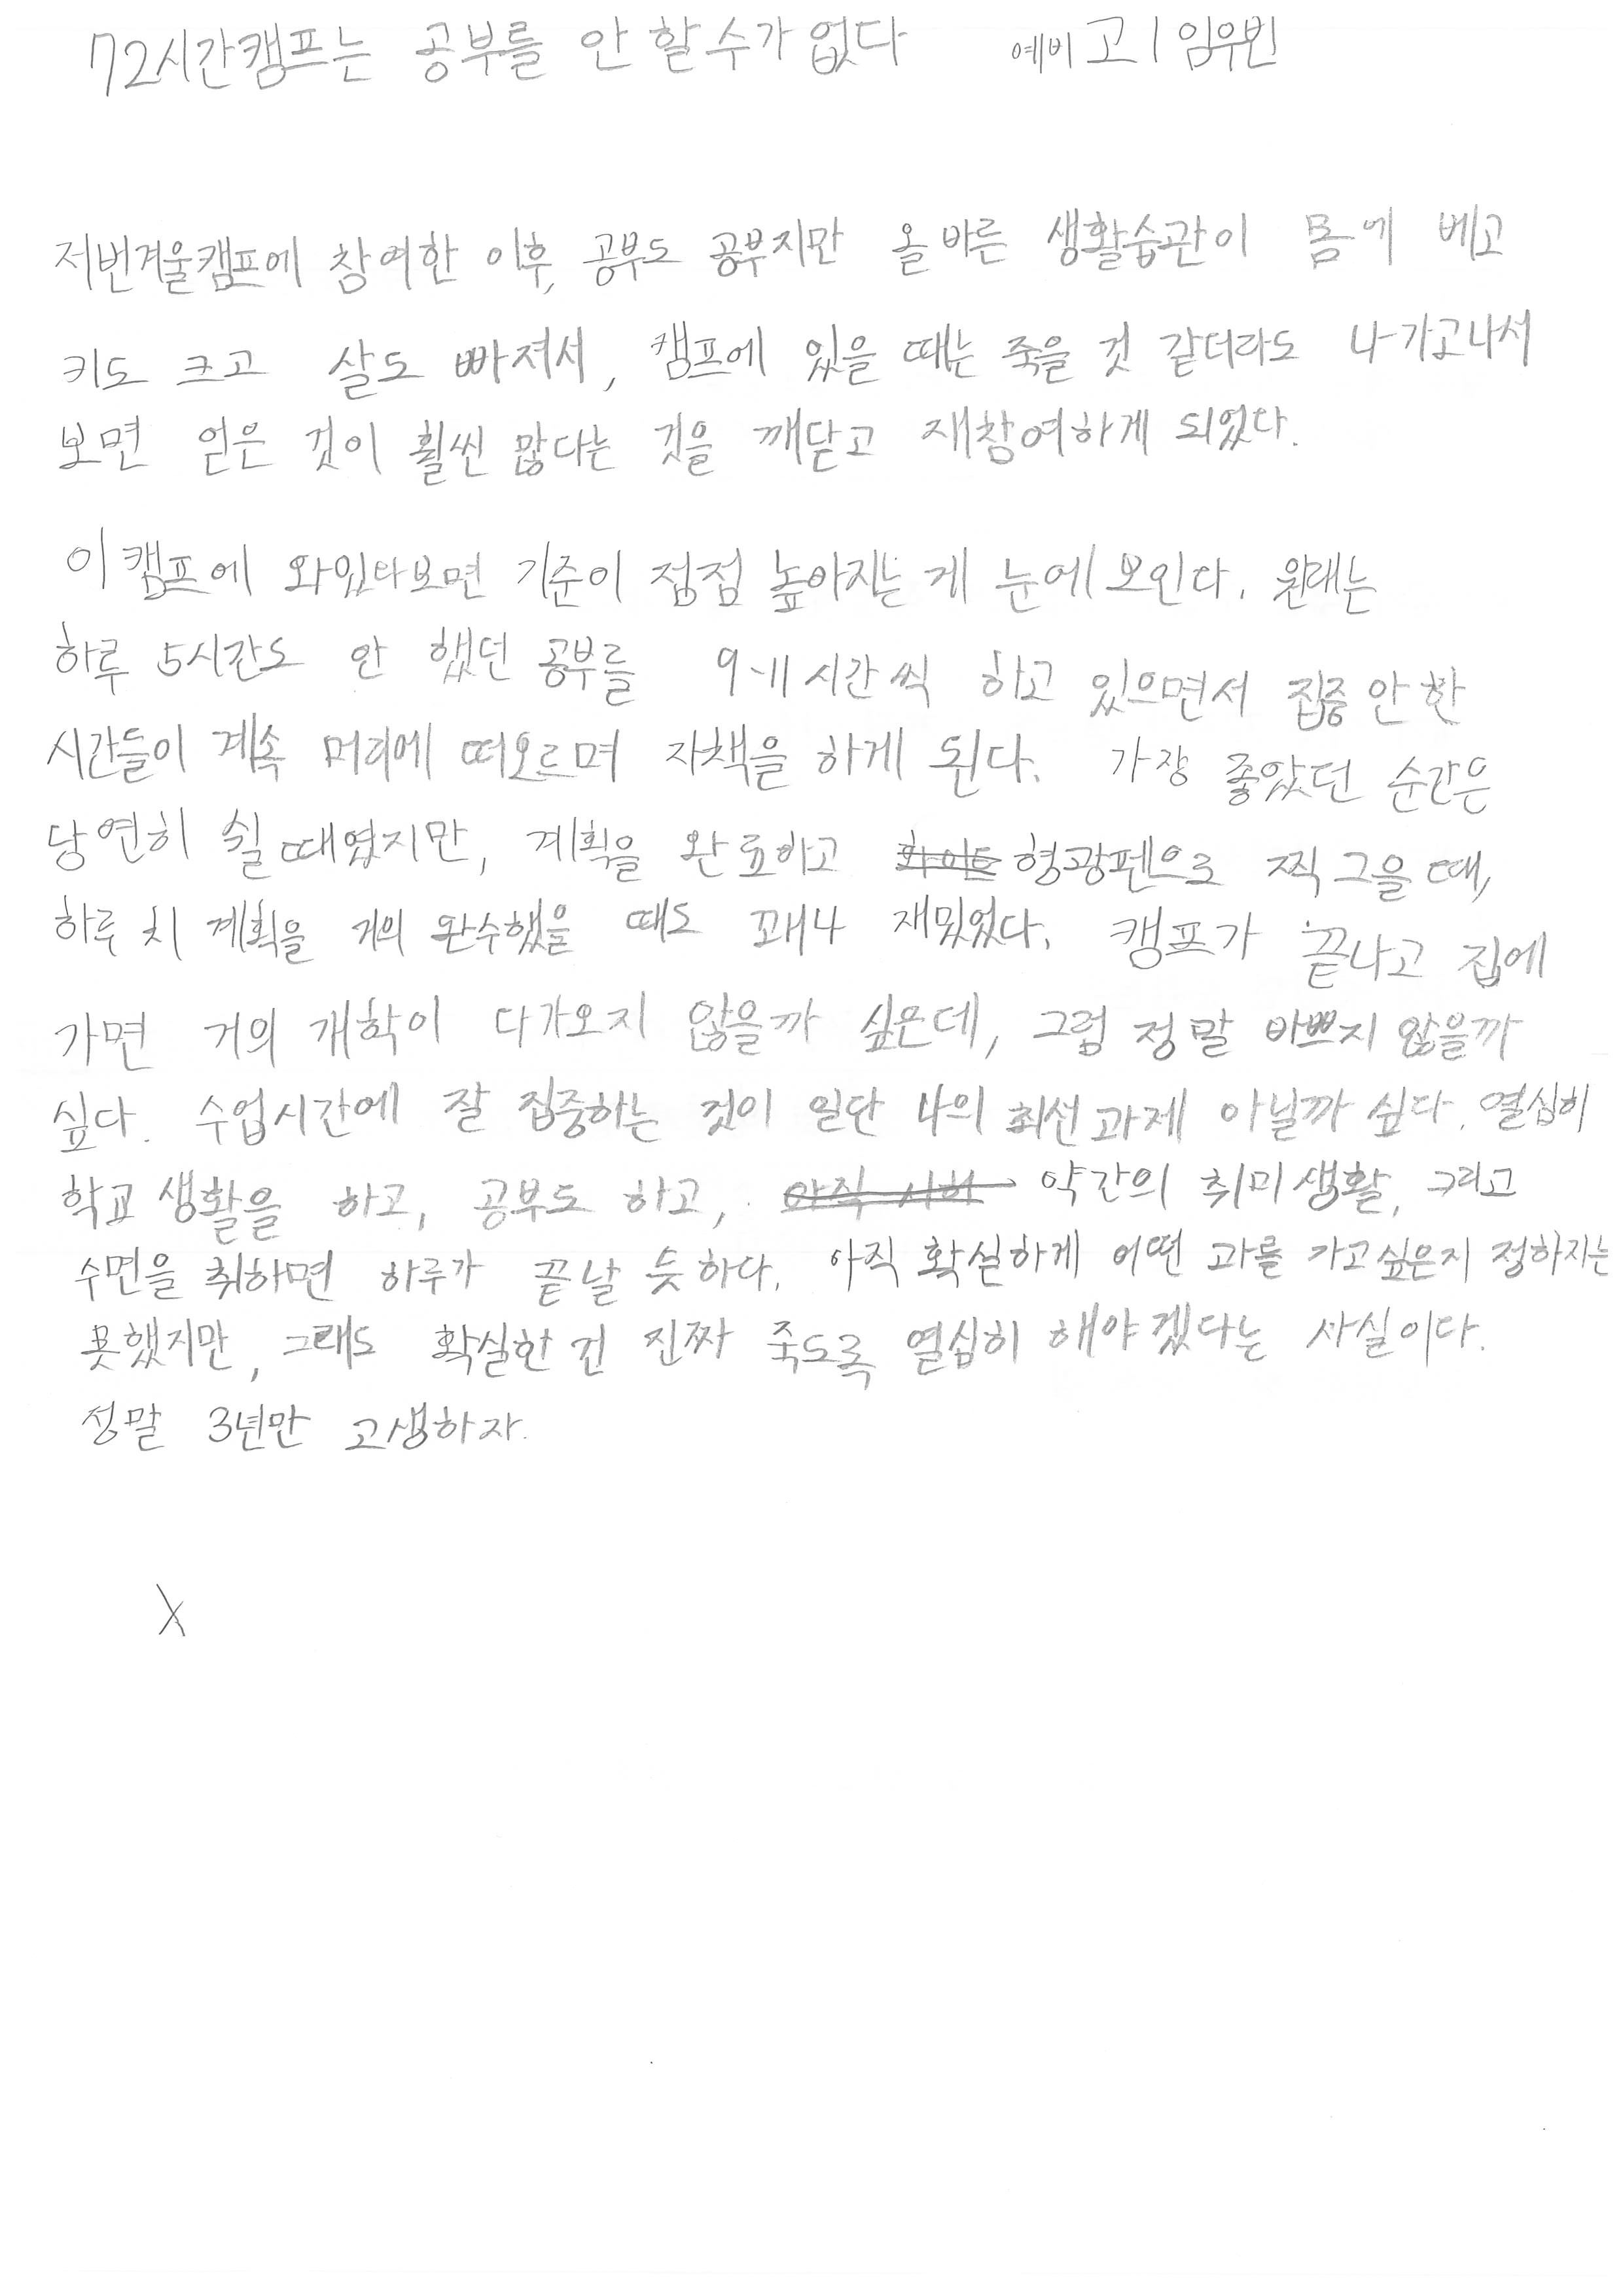 72시간캠프는 공부를 안 할 수가 없다 예비 고1 임우빈
저번겨울캠프에 참여한 이후, 공부도 공부지만 올바른 생활습관이 몸에 베고
키도 크고 살도 빠져서, 캠프에 있을 때는 죽을 것 같더라도 나가고나서
보면 얻은 것이 훨씬 많다는 것을 깨닫고 재참여하게 되었다.
이 캠프에 와있다보면 기준이 점점 높아지는 게 눈에 보인다. 원래는
하루 5시간도 안 했던 공부를 9-11시간씩 하고 있으면서 집중 안 한
시간들이 계속 머리에 떠오르며 자책을 하게 된다. 가장 좋았던 순간은
당연히 쉴 때였지만, 계획을 완료하고 형광펜으로 찍 그을 때,
하루 치 계획을 거의 완수했을 때도 꽤나 재밌었다. 캠프가 끝나고 집에
가면 거의 개학이 다가오지 않을까 싶은데, 그럼 정말 바쁘지 않을까
싶다. 수업시간에 잘 집중하는 것이 일단 나의 최선과제 아닐까 싶다. 열심히
학교 생활을 하고, 공부도 하고, 약간의 취미생활, 그리고
수면을 취하면 하루가 끝날 듯하다. 아직 확실하게 어떤 과를 가고싶은지 정하지는
못했지만, 그래도 확실한 건 진짜 죽도록 열심히 해야겠다는 사실이다.
정말 3년만 고생하자.
X